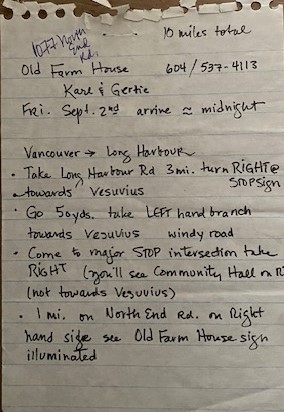 1077 North
End
Rd.
10 miles total
Old Farm House 604/537-4113
Karl & Gertie
Fri. Sept. 2nd arrive ≈ midnight
Vancouver → Long Harbour
• Take Long Harbour Rd 3mi. turn RIGHT @
STOPSign
towards Vesuvius
• Go 50yds. take LEFT hand branch
towards Vesuvius windy road
• Come to major STOP intersection take
RIGHT (you'll see Community Hall on R
(not towards Vesuvius)
• 1 mi. on North End Rd. on Right
hand side see Old Farm House sign
illuminated